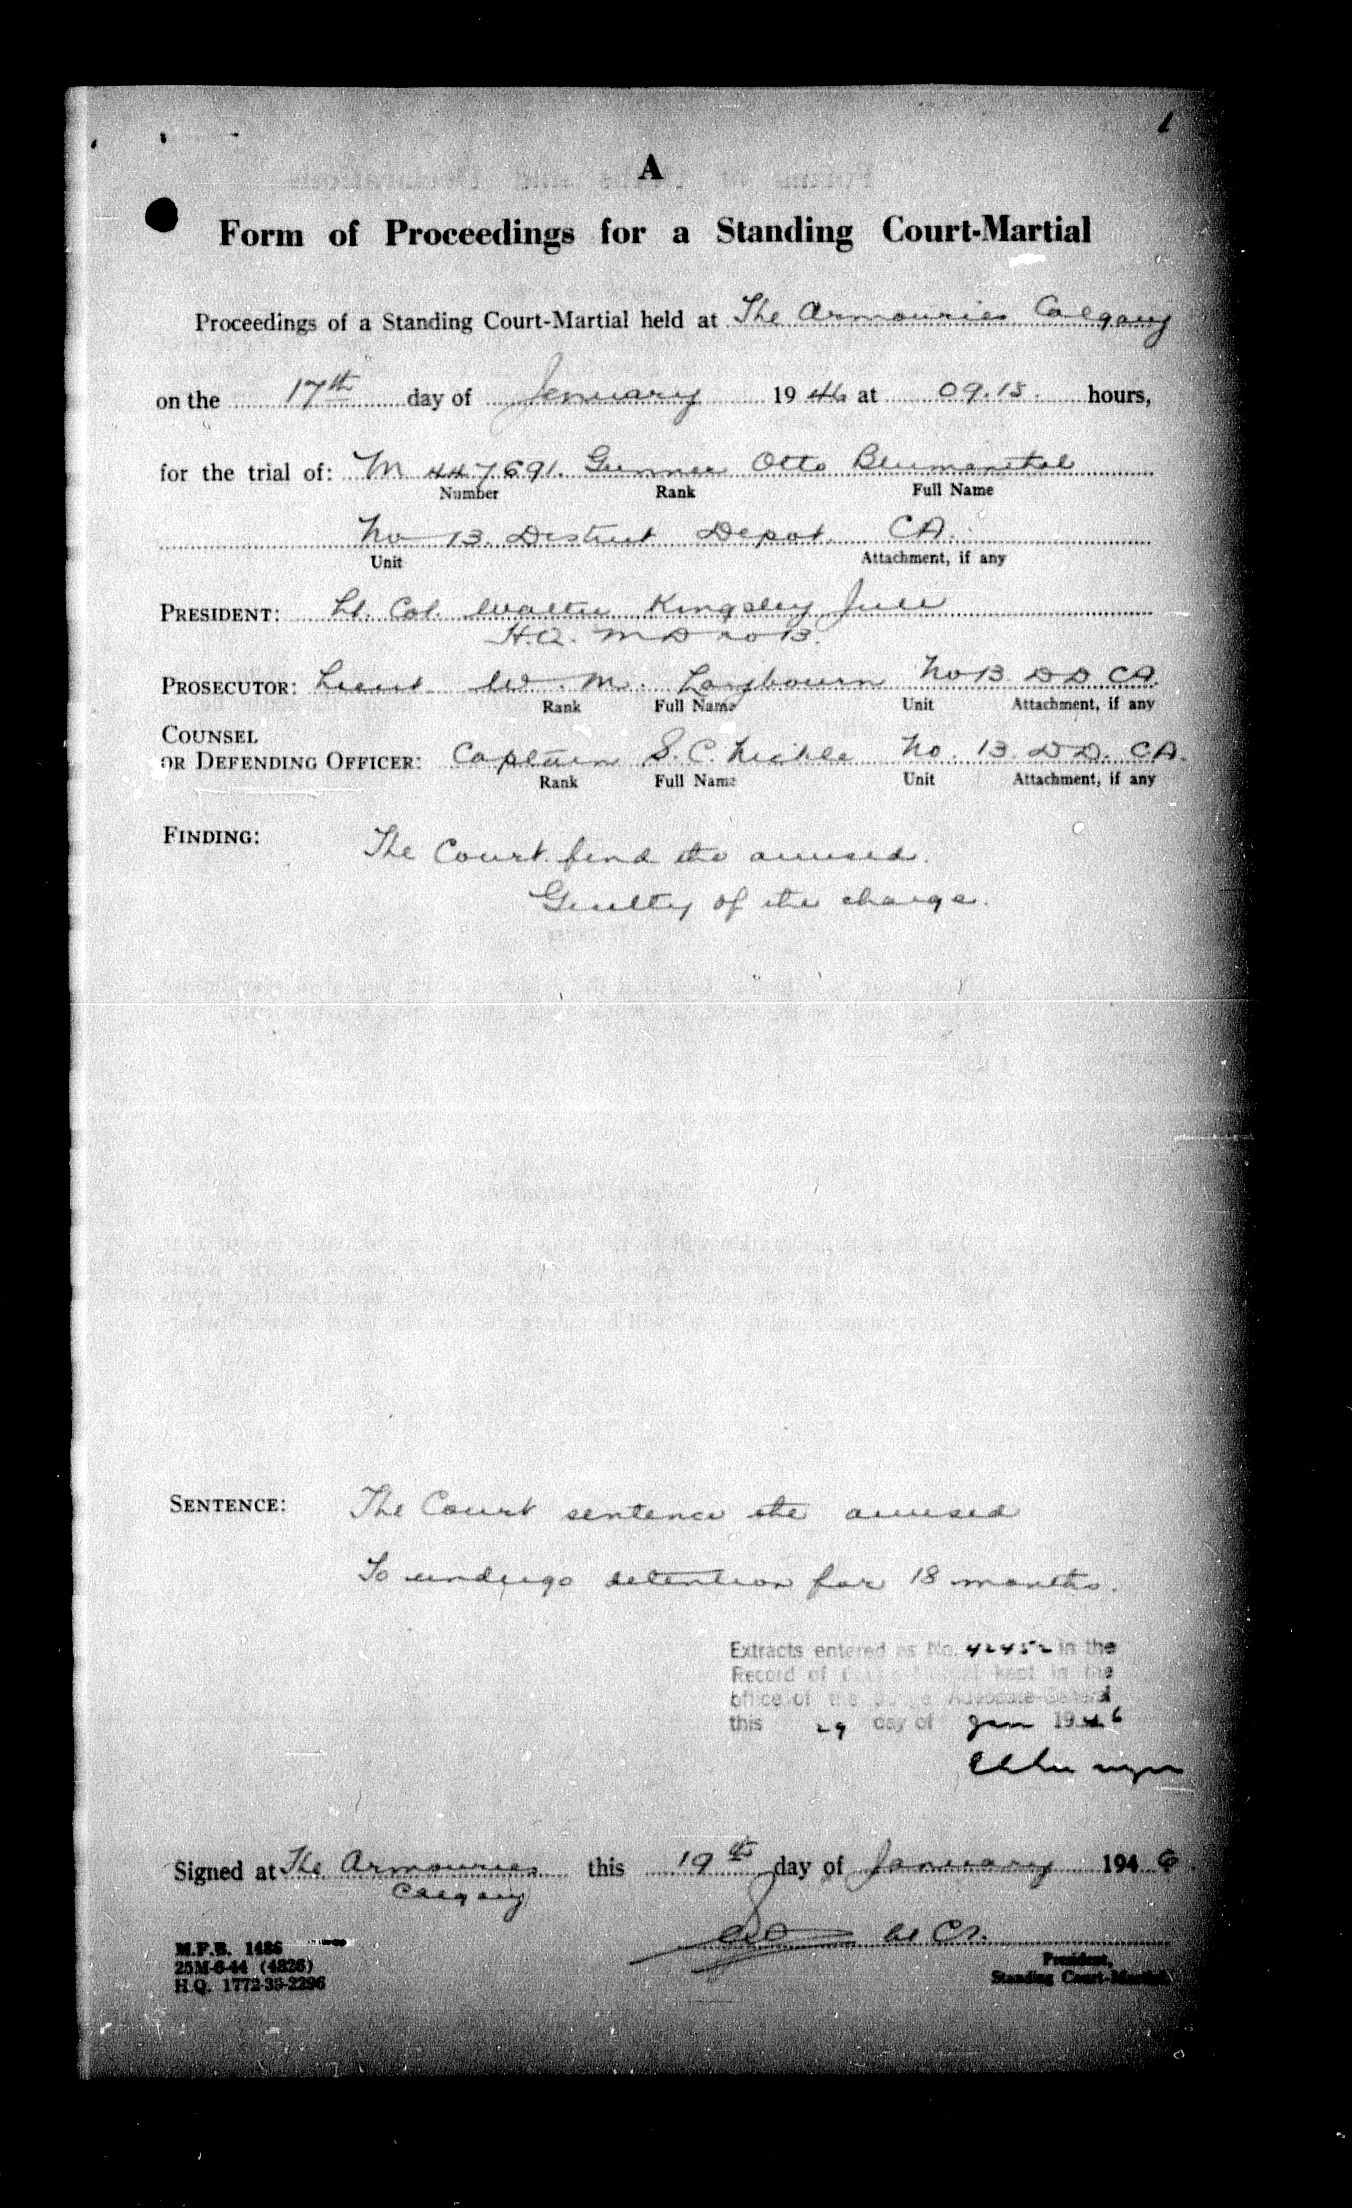 1
A
Form of Proceedings for a Standing Court-Martial
Proceedings of a Standing Court-Martial held at The Armouries Calgary
on the 17th day of January 1946 at 09.15 hours,
for the trial of: M 447691. Gunner Otto Blumenthal
Number Rank Full Name
No 13 District Depot CA.
Unit Attachment, if any
PRESIDENT: Lt. Col. Walter Kingsley Jull
H.Q. M D no 13.
PROSECUTOR: Lieut W. M. Laybourn No 13 DD CA.
Rank Full Name Unit Attachment, if any
COUNSEL
OR DEFENDING OFFICER: Captain S. C. Nickle No. 13 DD. CA.
Rank Full Name Unit Attachment, if any
FINDING: The Court find the accused
Guilty of the charge.
SENTENCE: The Court sentence the accused
To undergo detention for 18 months.
Extracts entered as No. 42452 in the
Record of Courts-Martial kept in the
office of the Judge Advocate-General
this 29 day of Jan 1946
Signed at The Armouries this 19th day of January 1946.
Calgary
Lt Col.
President,
Standing Court-Martial
M.F.B. 1486
25M-6-44 (4826)
H.Q. 1772-39-2296